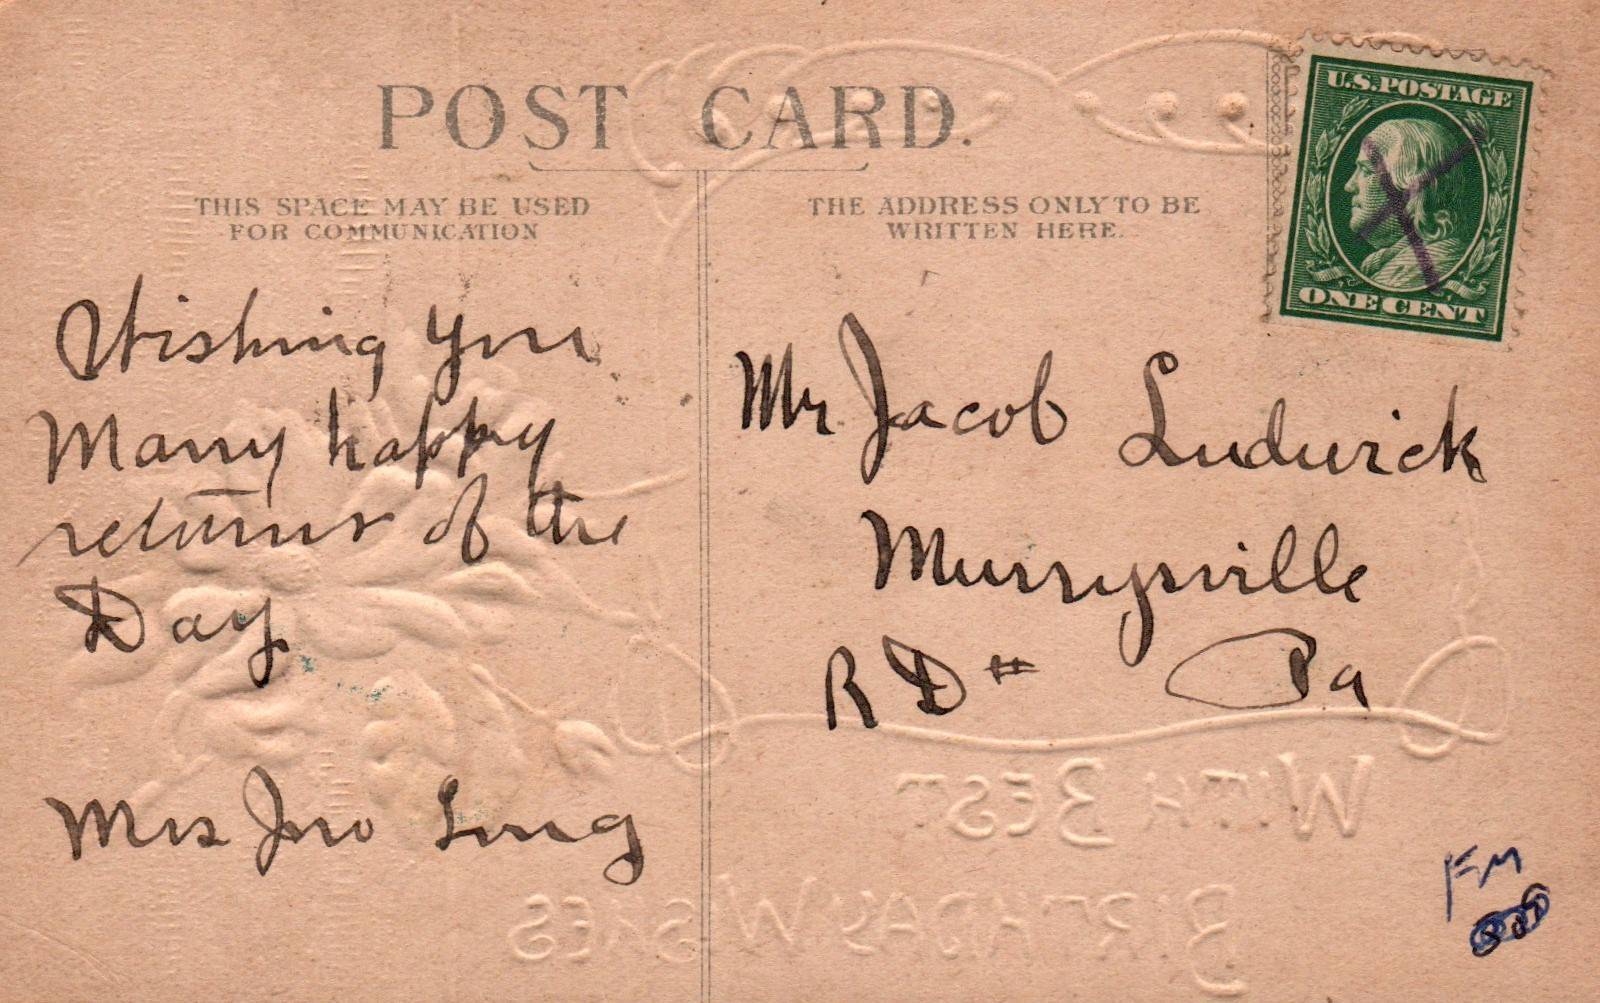 POST CARD.
THIS SPACE MAY BE USED
FOR COMMUNICATION
THE ADDRESS ONLY TO BE
WRITTEN HERE.
U.S. POSTAGE
ONE CENT
Wishing you
Many happy
returns of the
Day
Mrs Jno Long
Mr Jacob Ludwick
Murrysville
R D # Pa
WITH BEST
BIRTHDAY WISHES
FM